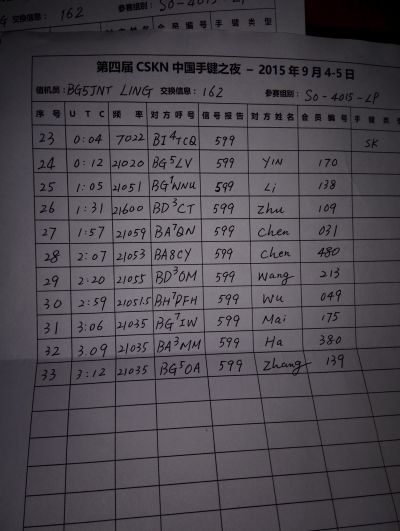 交换信息: 162 参赛组别: SO-4015-LP
第四届 CSKN 中国手键之夜 – 2015 年 9 月 4-5 日
值机员: BG5JNT LING 交换信息: 162 参赛组别: SO-4015-LP
序号 UTC 频率 对方呼号 信号报告 对方姓名 会员编号 手键类型
23 0:04 7022 BI4TCQ 599 SK
24 0:12 21020 BG5LV 599 YIN 170
25 1:05 21051 BG7NNU 599 Li 138
26 1:31 21600 BD3CT 599 Zhu 109
27 1:57 21059 BA7QN 599 Chen 031
28 2:07 21053 BA8CY 599 Chen 480
29 2:20 21055 BD3OM 599 Wang 213
30 2:59 21051.5 BH7PFH 599 Wu 049
31 3:06 21035 BG7IW 599 Mai 175
32 3.09 21035 BA3MM 599 Ha 380
33 3:12 21035 BG5OA 599 Zhang 139